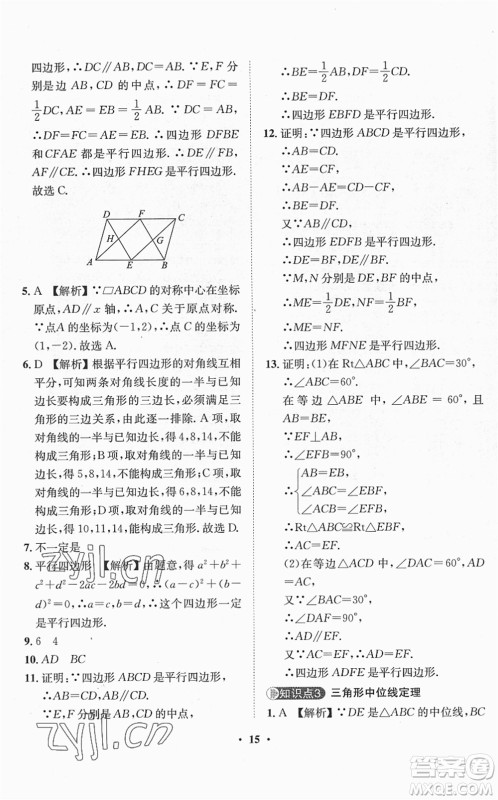 四边形,∴DC∥AB.∵E,F分
别是边 AB,CD 的中点,∴DF=FC=
1/2DC,AE=EB=1/2AB.∵DC=AB,
∴DF=AE=EB.∴四边形 DFBE
和 CFAE 都是平行四边形.∴DE∥FB,
AF∥CE.∴四边形 FHEG 是平行四边形.
故选 C.
D F C
H G
A E B
5. A 【解析】∵□ABCD 的对称中心在坐标
原点,AD∥x 轴,∴A,C 关于原点对称.
∵点A 的坐标为(-1,2),∴C 的坐标为
(1,-2).故选A.
6. D 【解析】根据平行四边形的对角线互相
平分,可知两条对角线长度的一半与已知
边长要构成三角形的三边,必须满足三角
形的三边关系,由此逐一排除. A 项,取对
角线的一半与已知边长,得 4,8,14,不能
构成三角形;B 项,取对角线的一半与已知
边长,得 5,8,14,不能构成三角形;C 项,
取对角线的一半与已知边长,得 6,8,14,
不能构成三角形;D 项,取对角线的一半与
已知边长,得 10,11,14,能构成三角形.
故选 D.
7. 不一定是
8. 平行四边形 【解析】由题意,得 a²+b²+
c²+d²-2ac-2bd=0,∴(a-c)²+(b-
d)²=0,∴a=c,b=d,∴这个四边形一定
是平行四边形.
9. 6 4
10. AD BC
11. 证明:∵四边形 ABCD 是平行四边形,
∴CD∥AB,CD=AB.
∵E,F 分别是边 AB,CD 的中点,
∴BE=1/2AB,DF=1/2CD.
∴BE=DF.
∴四边形 EBFD 是平行四边形.
12. 证明:∵四边形 ABCD 是平行四边形,
∴AB∥CD,AB=CD.
∵AE=CF,
∴AB-AE=CD-CF.
∴BE=DF.
又∵AB∥CD,
∴四边形 EDFB 是平行四边形.
∴DE=BF,DE∥BF.
∵M,N 分别是 DE,BF 的中点,
∴ME=1/2DE,NF=1/2BF.
∴ME=NF.
又∵DE∥BF,
∴四边形 MFNE 是平行四边形.
13. 证明:(1)在 Rt△ABC 中,∠BAC=30°,
∴∠ABC=60°.
在等边△ABE 中,∠ABE=60°,
且AB=BE.
∵EF⊥AB,
∴∠EFB=90°.
∴{AB=EB,
∠ABC=∠EBF,
∠ACB=∠EFB,
∴Rt△ABC≌Rt△EBF.
∴AC=EF.
(2)在等边△ACD 中,∠DAC=60°,
AD=AC,又∵∠BAC=30°,
∴∠DAF=90°.
∴AD∥EF.
又∵AC=EF,∴AD=EF.
∴四边形 ADFE 是平行四边形.
知识点3 三角形中位线定理
1. A 【解析】∵DE 是△ABC 的中位线,BC
• 15 •
zyjl.cn
zyjl.cn
作业精灵